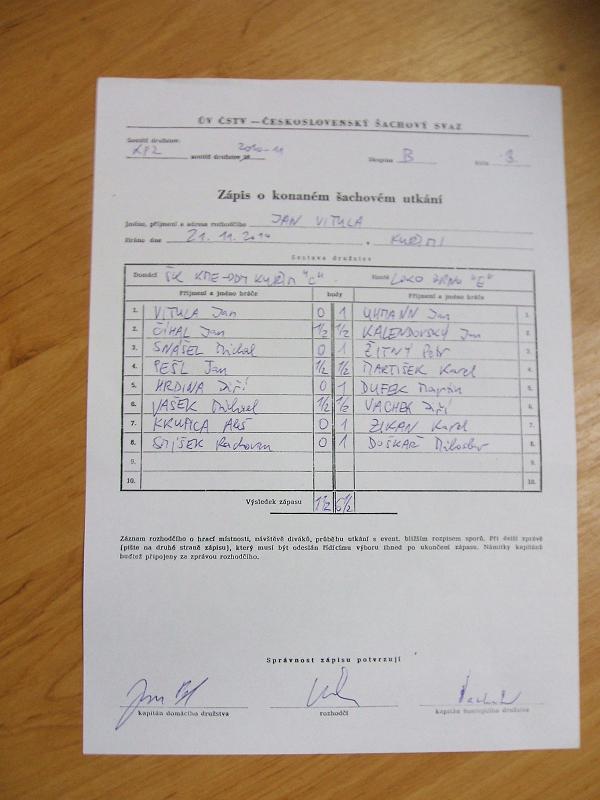 ÚV ČSTV — ČESKOSLOVENSKÝ ŠACHOVÝ SVAZ
Soutěž družstev:
KP2 soutěž družstev 2010-11 Skupina B Kolo 3
Zápis o konaném šachovém utkání
Jméno, příjmení a adresa rozhodčího JAN VITULA
Hráno dne 21. 11. 2010 v KUŘIMI
Sestava družstev
Domácí ŠK KME-DDM KUŘIM "C" Hosté LOKO BRNO "E"
Příjmení a jméno hráče body Příjmení a jméno hráče
1. VITULA Jan 0 1 UHMANN Jan 1.
2. ČÍHAL Jan 1/2 1/2 KALENDOVSKÝ Jan 2.
3. SNÁŠEL Michal 0 1 ŽITNÝ Petr 3.
4. PEŠL Jan 1/2 1/2 MARTIŠEK Karel 4.
5. HRDINA Jiří 0 1 DUFEK 5.
6. VAŠEK Michael 1/2 1/2 VACHEK Jiří 6.
7. KRUPICA Aleš 0 1 ZIKAN Karel 7.
8. Radovan 0 1 DOŠKAŘ Miloslav 8.
9. 9.
10. 10.
Výsledek zápasu 1 1/2 6 1/2
Záznam rozhodčího o hrací místnosti, návštěvě diváků, průběhu utkání s event. bližším rozpisem sporů. Při delší zprávě
(pište na druhé straně zápisu), který musí být odeslán řídícímu výboru ihned po ukončení zápasu. Námitky kapitánů
buďtež připojeny za zprávou rozhodčího.
Správnost zápisu potvrzují
kapitán domácího družstva rozhodčí kapitán hostujícího družstva